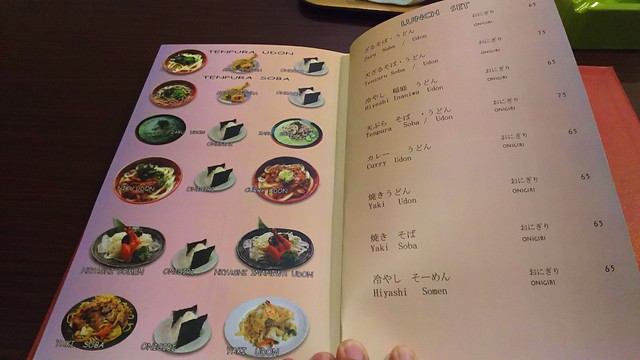 TENPURA UDON
ONIGIRI
TENPURA SOBA
ONIGIRI
ZARU UDON
ONIGIRI
UDON
ONIGIRI
CURRY UDON
HIYASHI SOMEN
ONIGIRI
HIYASHI INANIWA UDON
YAKI SOBA
ONIGIRI
YAKI UDON
LUNCH SET
ざるそば・うどん おにぎり 65
Zaru Soba / Udon ONIGIRI
天ざるそば・うどん おにぎり 75
Tenzaru Soba / Udon ONIGIRI
冷やし 稲庭 うどん おにぎり 65
Hiyashi Inaniwa Udon ONIGIRI
天ぷら そば ・うどん おにぎり 75
Tenpura Soba / Udon ONIGIRI
カレー うどん おにぎり 65
Curry Udon ONIGIRI
焼きうどん おにぎり 65
Yaki Udon ONIGIRI
焼き そば おにぎり 65
Yaki Soba ONIGIRI
冷やし そーめん おにぎり 65
Hiyashi Somen ONIGIRI